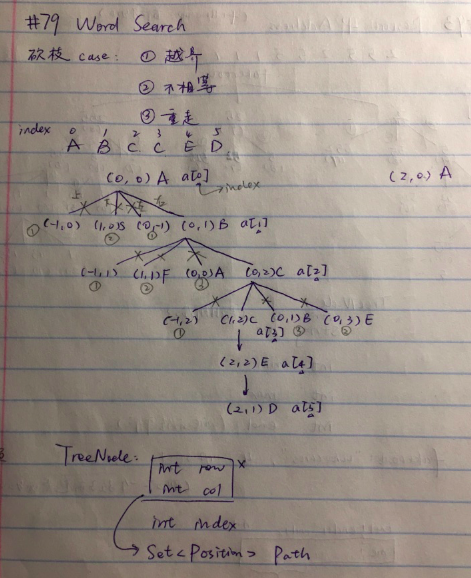 #79 Word Search
砍枝 case: ① 越界
② 不相等
③ 重走
index 0 1 2 3 4 5
A B C C E D
(0,0) A a[0] (2,0) A
index
上 下 左 右
① (-1,0) (1,0)S (0,-1) (0,1) B a[1]
② ①
(-1,1) (1,1)F (0,0)A (0,2)C a[2]
① ② ③
(-1,2) (1,2)C (0,1)B (0,3) E
① a[3] ③ ②
(2,2) E a[4]
(2,1) D a[5]
TreeNode: int row x
int col
int index
Set<Position> Path